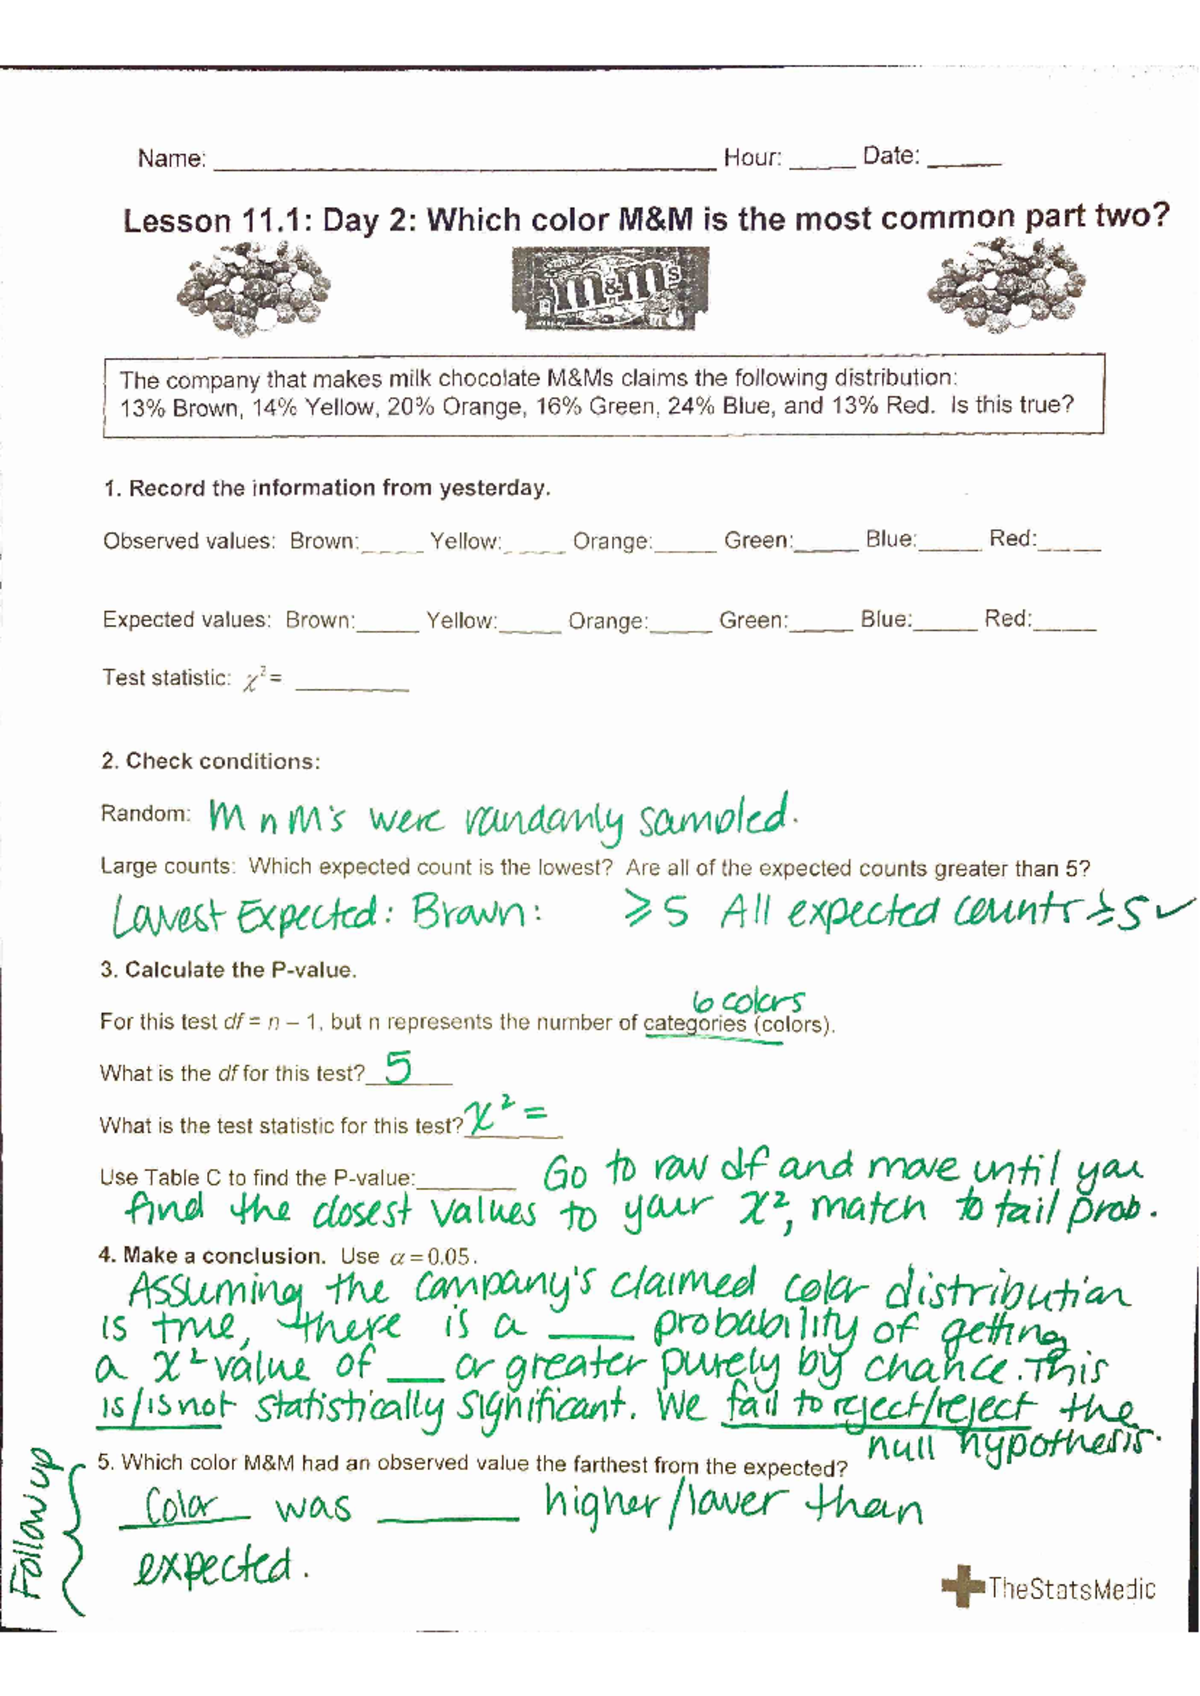 Name: ____ Hour: ____ Date: ____
Lesson 11.1: Day 2: Which color M&M is the most common part two?
m&m's
The company that makes milk chocolate M&Ms claims the following distribution:
13% Brown, 14% Yellow, 20% Orange, 16% Green, 24% Blue, and 13% Red. Is this true?
1. Record the information from yesterday.
Observed values: Brown:____ Yellow:____ Orange:____ Green:____ Blue:____ Red:____
Expected values: Brown:____ Yellow:____ Orange:____ Green:____ Blue:____ Red:____
Test statistic: χ²= ____
2. Check conditions:
Random: M n M's were randomly sampled.
Large counts: Which expected count is the lowest? Are all of the expected counts greater than 5?
Lowest Expected: Brown: ≥5 All expected counts ≥5 ✓
3. Calculate the P-value.
6 colors
For this test df = n – 1, but n represents the number of categories (colors).
What is the df for this test? 5
What is the test statistic for this test? χ² =
Use Table C to find the P-value:____ Go to row df and move until you
find the closest values to your χ², match to tail prob.
4. Make a conclusion. Use α = 0.05.
Assuming the company's claimed color distribution
is true, there is a ____ probability of getting
a χ² value of ____ or greater purely by chance. This
is/is not statistically significant. We fail to reject/reject the
null hypothesis.
5. Which color M&M had an observed value the farthest from the expected?
Color was ____ higher/lower than
expected.
Follow up
TheStatsMedic